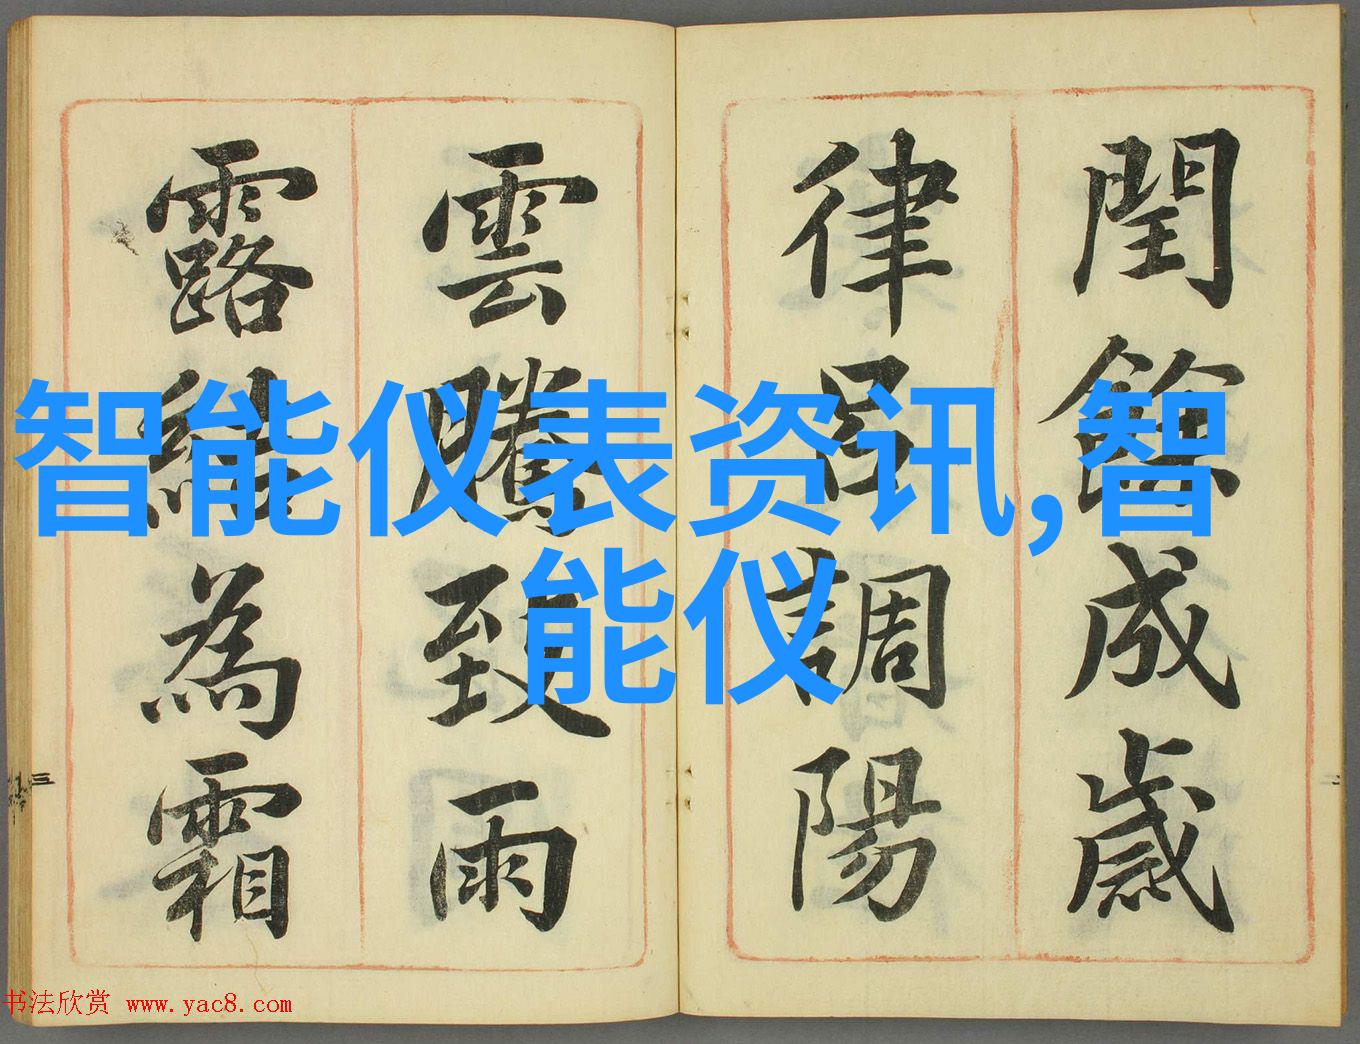 閏餘成歲
律呂調陽
雲騰致雨
露結為霜
智能仪表资讯,智
能仪
三
二
书法欣赏 www.yac8.com